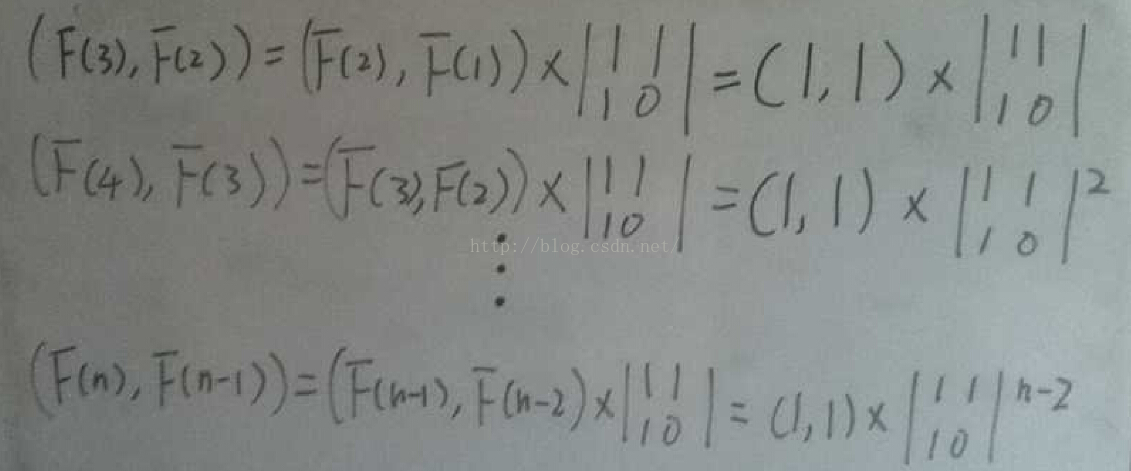 (F(3), F(2)) = (F(2), F(1)) × |1 1 / 1 0| = (1, 1) × |1 1 / 1 0|
(F(4), F(3)) = (F(3), F(2)) × |1 1 / 1 0| = (1, 1) × |1 1 / 1 0|²
http://blog.csdn.net/
⋮
(F(n), F(n-1)) = (F(n-1), F(n-2) × |1 1 / 1 0| = (1, 1) × |1 1 / 1 0|ⁿ⁻²